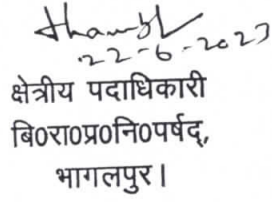 22-6-2023
क्षेत्रीय पदाधिकारी
बि0रा0प्र0नि0पर्षद्,
भागलपुर।